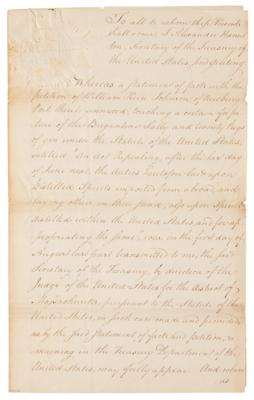 To all to whom these Presents
shall come, I Alexander Hamil
ton, Secretary of the Treasury of
the United States, send greeting
Whereas a statement of facts with the
petition of William Johnson, of Newbury
Port there unto annexed, touching a certain forfei
ture of the Brigantine Sally and twenty kegs
of gin under the Statute of the United States,
entitled "An act Repealing, after the last day
of June next, the duties heretofore laid upon
Distilled Spirits imported from abroad, and
laying others in their stead; also upon Spirits
distilled within the United States, and for ap
propriating the same" was on the first day of
August last past transmitted to me, the said
Secretary of the Treasury, by direction of the
Judge of the United States for the district of
Massachusetts, pursuant to the Statute of the
United States, in such case made and provided
as by the said Statement of facts and petition, re
maining in the Treasury Department of the
United States, may fully appear. And whereas